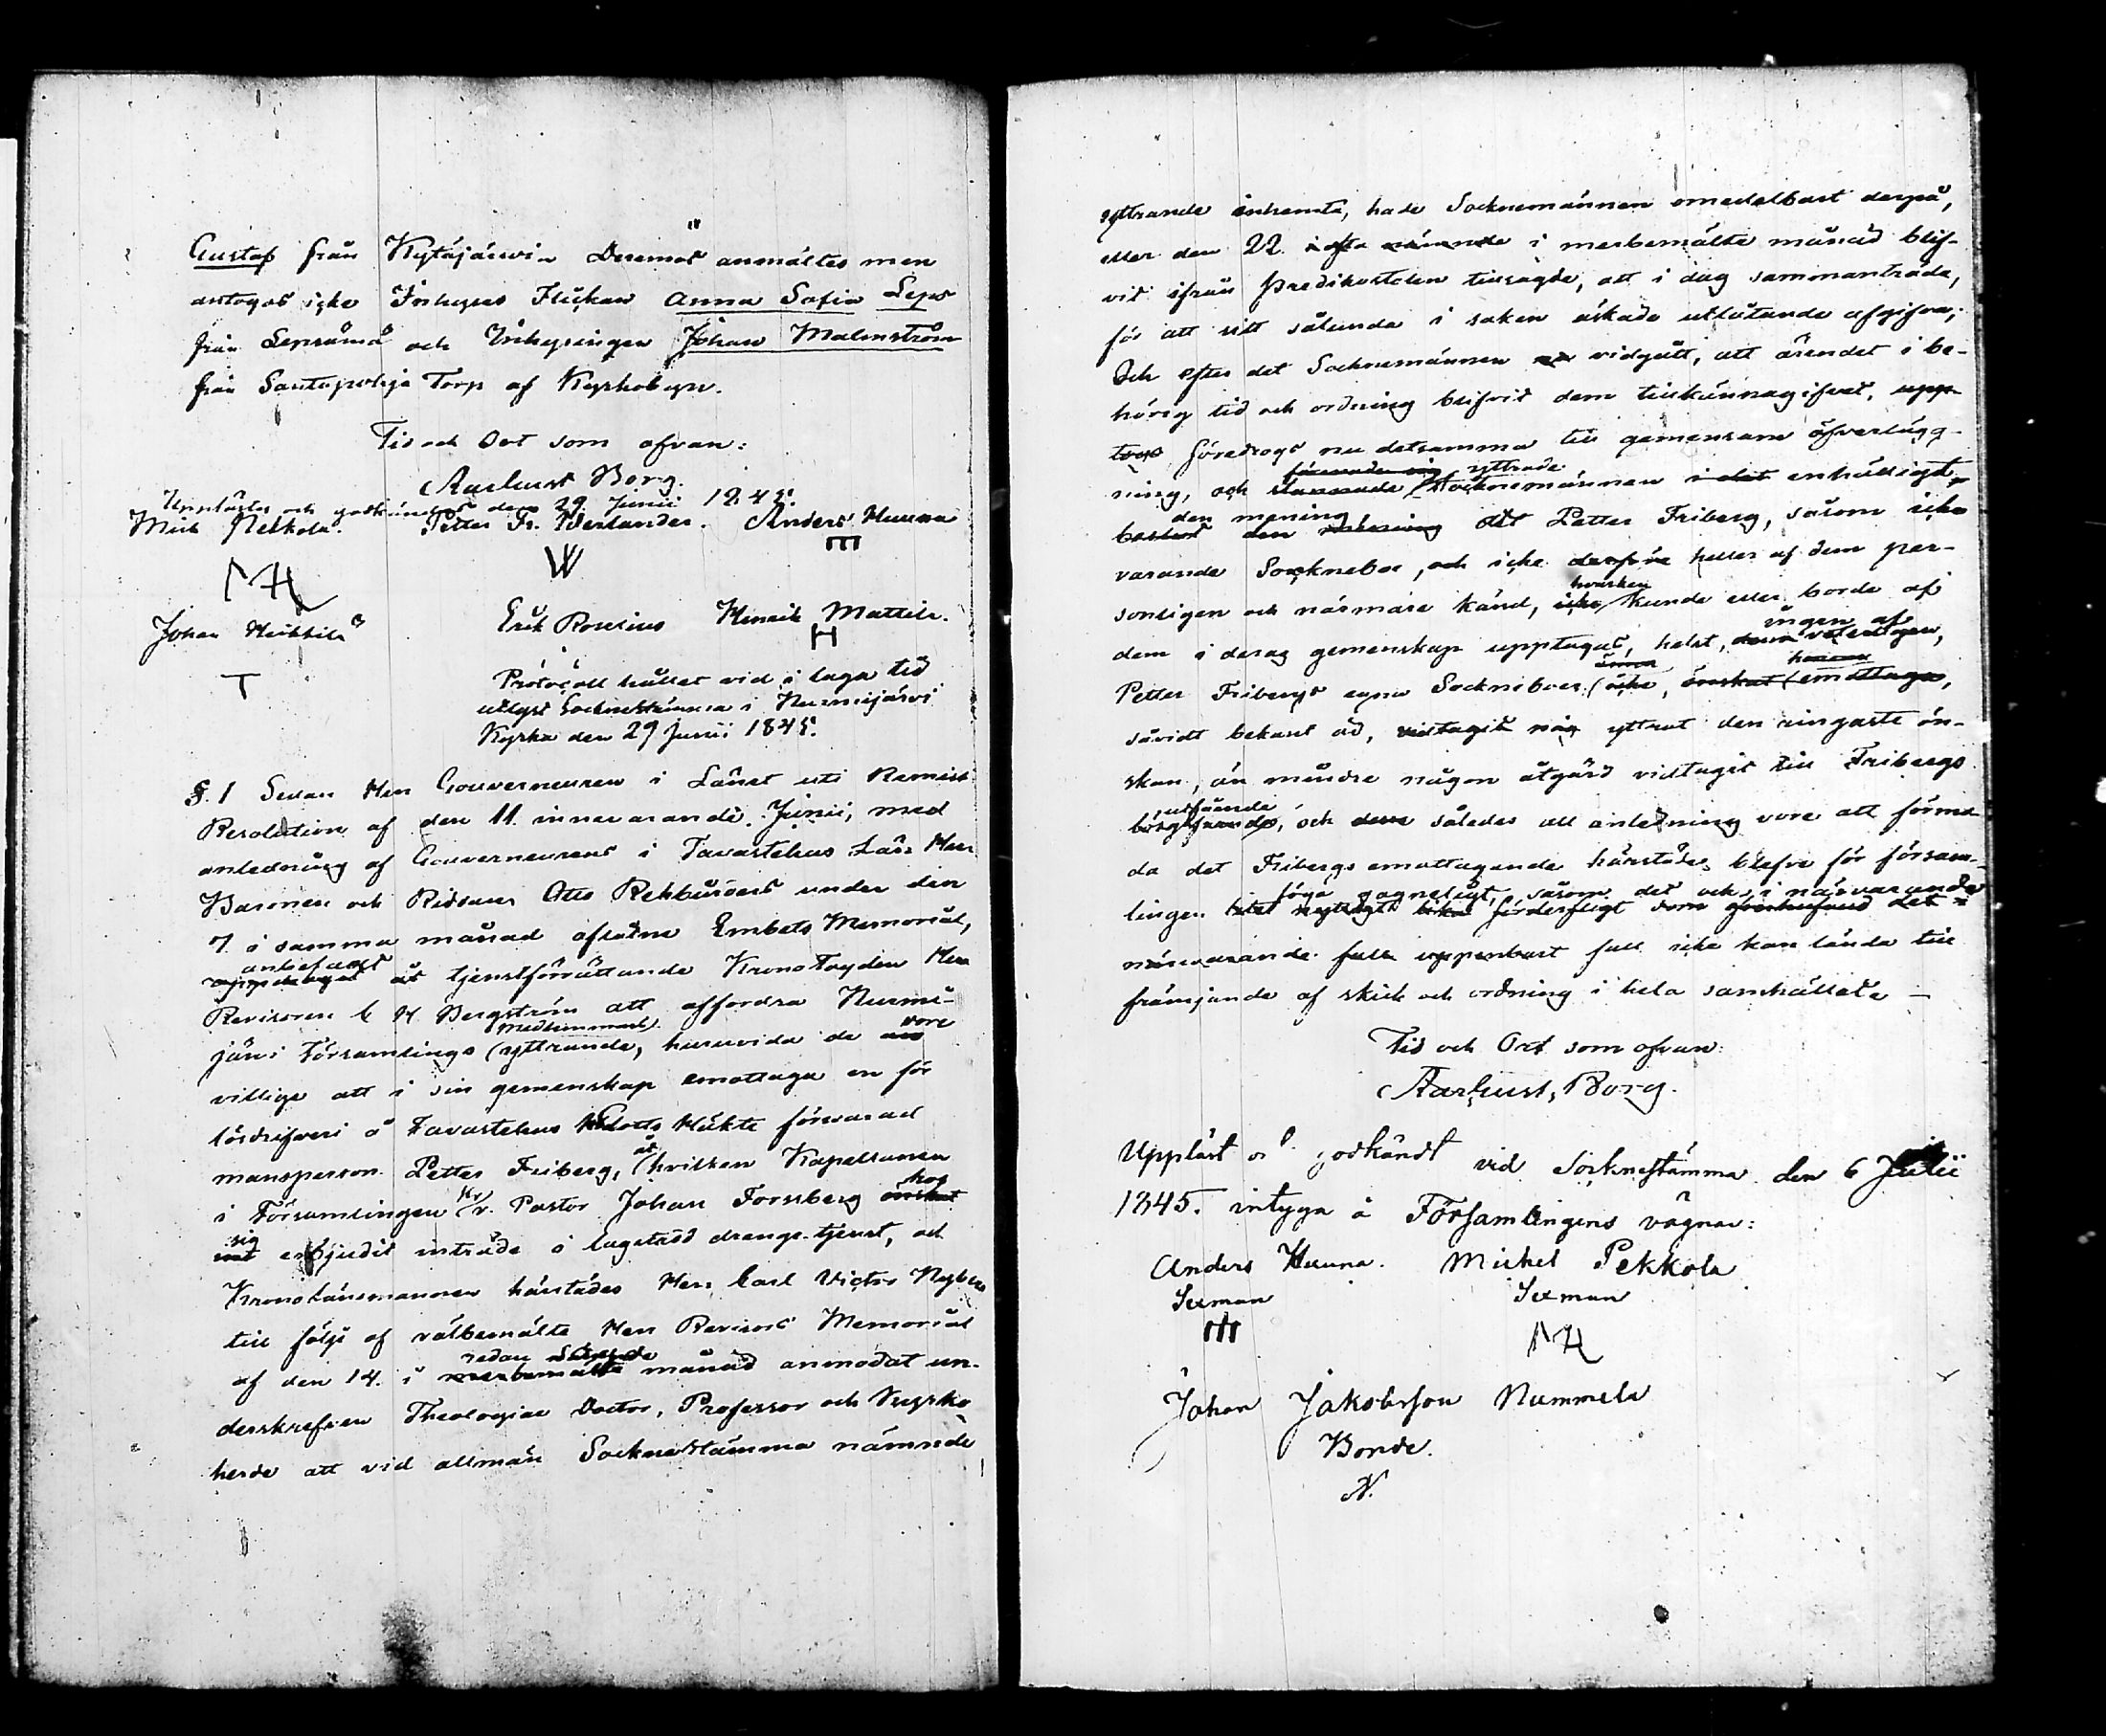 Gustaf från Kytäjärvi. Deremot anmältes men
antogos icke Inhyses Flickan Anna Sofia Leps
från Lepsämä och Inhysingen Johan Malmström
från Santapohja Torp af Kyrkobyn.
Tid och Ort som ofvan:
Aarhust Borg.
Uppläste och godkändes den 29 Junii 1845.
Mich Pekkola. Petter Fr. Anders Hunna
Johan Heikkilä Erik Roselius Henrik Mattila.
T H
Protocoll hållet vid i laga tid
utlyst Socknestämma i Nurmijärvi
Kyrka den 29 Junii 1845.
§. 1 Sedan Herr Gouverneuren i Länet uti Remiss
Resolution af den 11 innevarande Junii, med
anledning af Gouverneurens i Tavastehus Län Herr
Baronen och Riddaren Otto Rehbinders under den
7 i samma månad aflåtne Embets Memorial,
anbefallt
uppdragit åt tjenstförrättande Kronofogden Herr
Revisoren C H Bergström att affordra Nurmi-
medlemmars vore
järvi Församlings yttrande, huruvida de
villige att i sin gemenskap emottaga en för
lösdrifveri å Tavastehus Slotts Häkte förvarad
mansperson Petter Friberg, åt hvilken Kapellanen
hos
i Församlingen Hr V. Pastor Johan Forssberg önskat
sig erbjudit inträde i lagstadd drenge-tjenst, och
Kronolänsmannen härstädes Herr Carl Victor Nyberg
till följe af välbemälte Herr Revisors Memorial
redan
af den 14. i merbemälte månad anmodat un-
derskrefven Theologiae Doctor, Professor och Kyrko-
herde att vid allmän Socknestämma nämnde
yttrande inhemta, hade Socknemännen omedelbart derpå,
eller den 22 i ofta nämnde i merbemälte månad blif-
vit ifrån Predikostolen tillsagde, att i dag sammanträda,
för att sitt sålunda i saken äskade utlåtande afgifva;
Och efter det Socknemännen vidgått, att ärendet i be-
hörig tid och ordning blifvit dem tillkännagifvet, upp-
togs föredrogs nu detsamma till gemensam öfverlägg-
förenade sig yttrade
ning, och stannade Socknemännen i det enhälligt
den mening
den att Petter Friberg, såsom icke
varande Sockneboe, och icke derföre heller af dem per-
hvarken
sonligen och närmare känd, icke kunde eller borde af
ingen af
dem i deras gemenskap upptagas, helst, dem veterligen,
honom
Petter Fribergs egna Sockneboer icke, önskat emottaga,
såvidt bekant är, vidtagit någ yttrat den ringaste ön-
skan, än mindre någon åtgärd vidtagit till Fribergs
utfående
och således all anledning vore att förmo-
da det Fribergs emottagande härstädes blefve för försam-
föga gagneligt, såsom det ock i närvarande
lingen förderfligt som det i
närvarande fall uppenbart fall icke kan lända till
främjande af skick och ordning i hela samhället. —
Tid och Ort som ofvan:
Aarhust, Borg.
Uppläst och godkändt vid Socknestämma den 6 Julii
1845. intyga å Församlingens vägnar:
Anders Hunna. Michel Pekkola
Sexman Sexman
Johan Jakobsson Nummela
Bonde.
N.